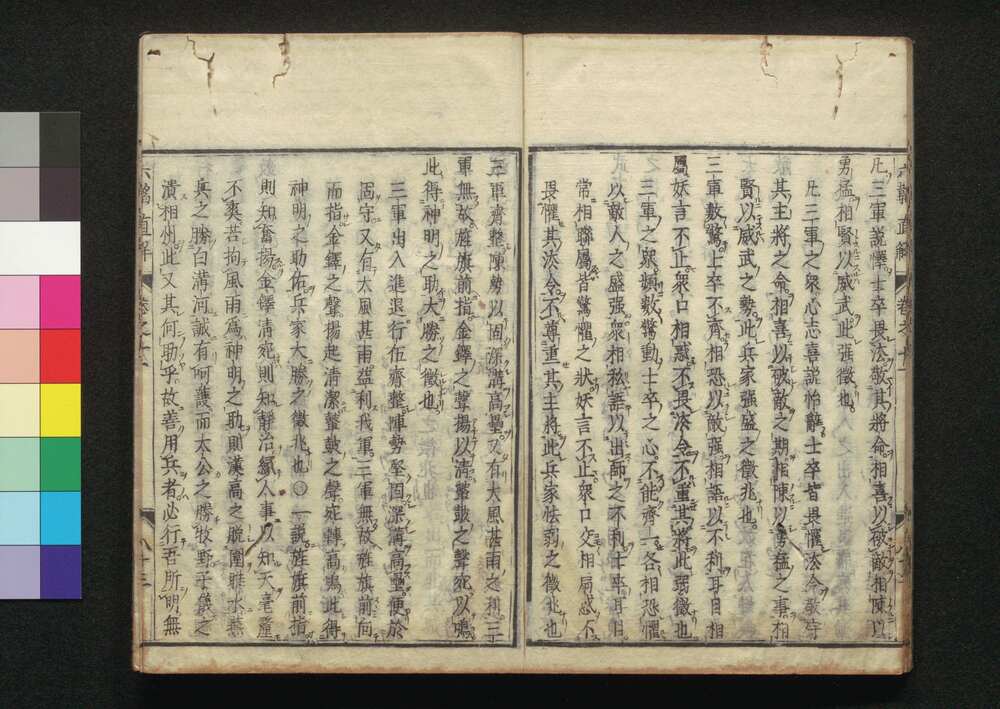 凡三軍説懌士卒畏法敬其將命相喜以破敵相陳以
勇猛相賢以威武此強徵也
凡三軍之衆心志喜説怡辭士卒皆畏懼法令敬守
其主將之命相喜以破敵之期相陳以勇猛之事相
賢以威武之勢此兵家强盛之徵兆也
三軍數驚士卒不齊相恐以敵强相語以不利耳目相
屬妖言不止衆口相惑不畏法令不重其將此弱徵也
三軍之衆頻數驚動士卒之心不能齊一各相恐懼
以敵人之盛强衆相私語以出師之不利士卒耳目
常相聯屬皆驚懼之狀妖言不止衆口交相扇惑不
畏懼其法令不尊重其主將此兵家怯弱之徵兆也
三軍齊整陳勢以固深溝高壘又有大風甚雨之利三
軍無故旌旗前指金鐸之聲揚以清鼙鼓之聲宛以鳴
此得神明之助大勝之徵也
三軍出入進退行伍齊整陳勢堅固深溝高壘便於
固守又有大風甚雨益利我軍三軍無故旌旗前向
而指金鐸之聲揚起清潔鼙鼓之聲宛轉高鳴此得
神明之助佑兵家大勝之徵兆也〇一説旌旗前指
則知奮揚金鐸清宛則知靜治縁人事以知天毫釐
不爽若拘風雨爲神明之助則漢高之脱圍睢水燕
兵之勝白溝河誠有呵護而太公之勝牧野子儀之
潰相州此又其何助乎故善用兵者必行吾所明無
六韜直解
卷之十三